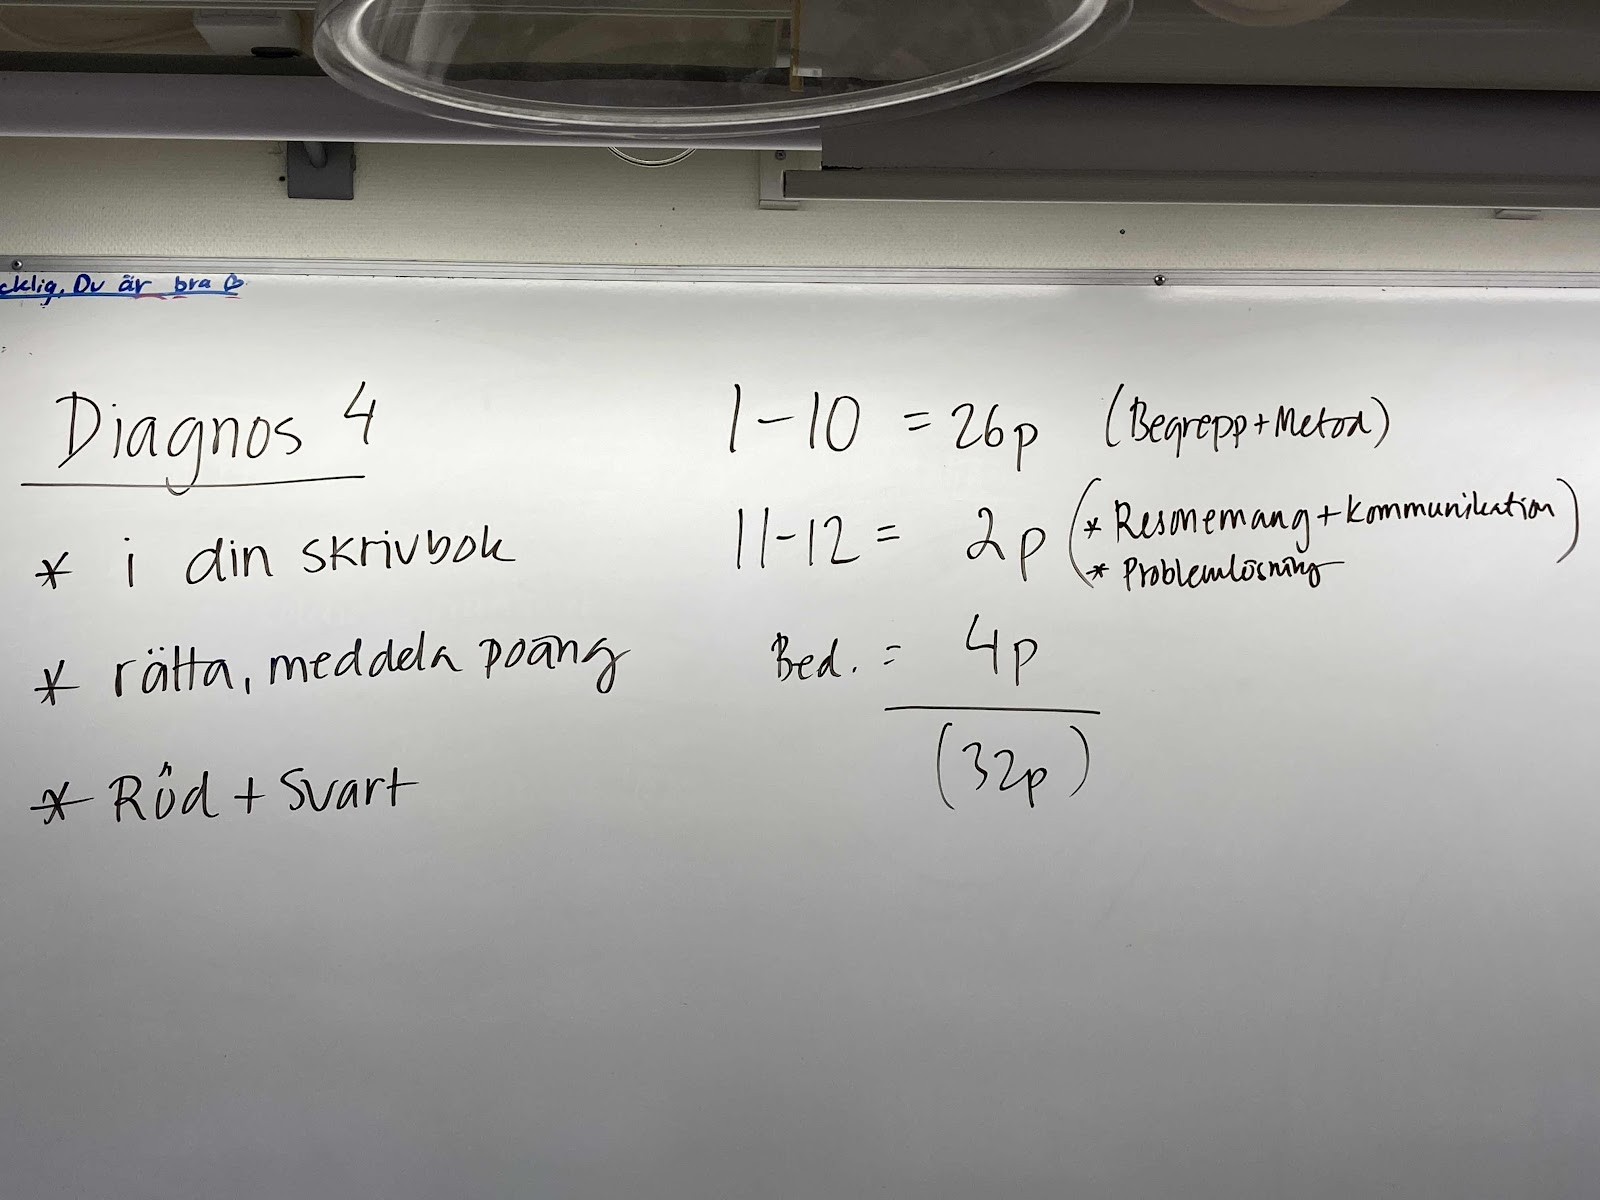 cklig, Du är bra
Diagnos 4
* i din skrivbok
* rätta, meddela poäng
* Röd + Svart
1-10 = 26p (Begrepp+Metod)
11-12 = 2p (* Resonemang+kommunikation
* Problemlösning)
Bed. = 4p
(32p)